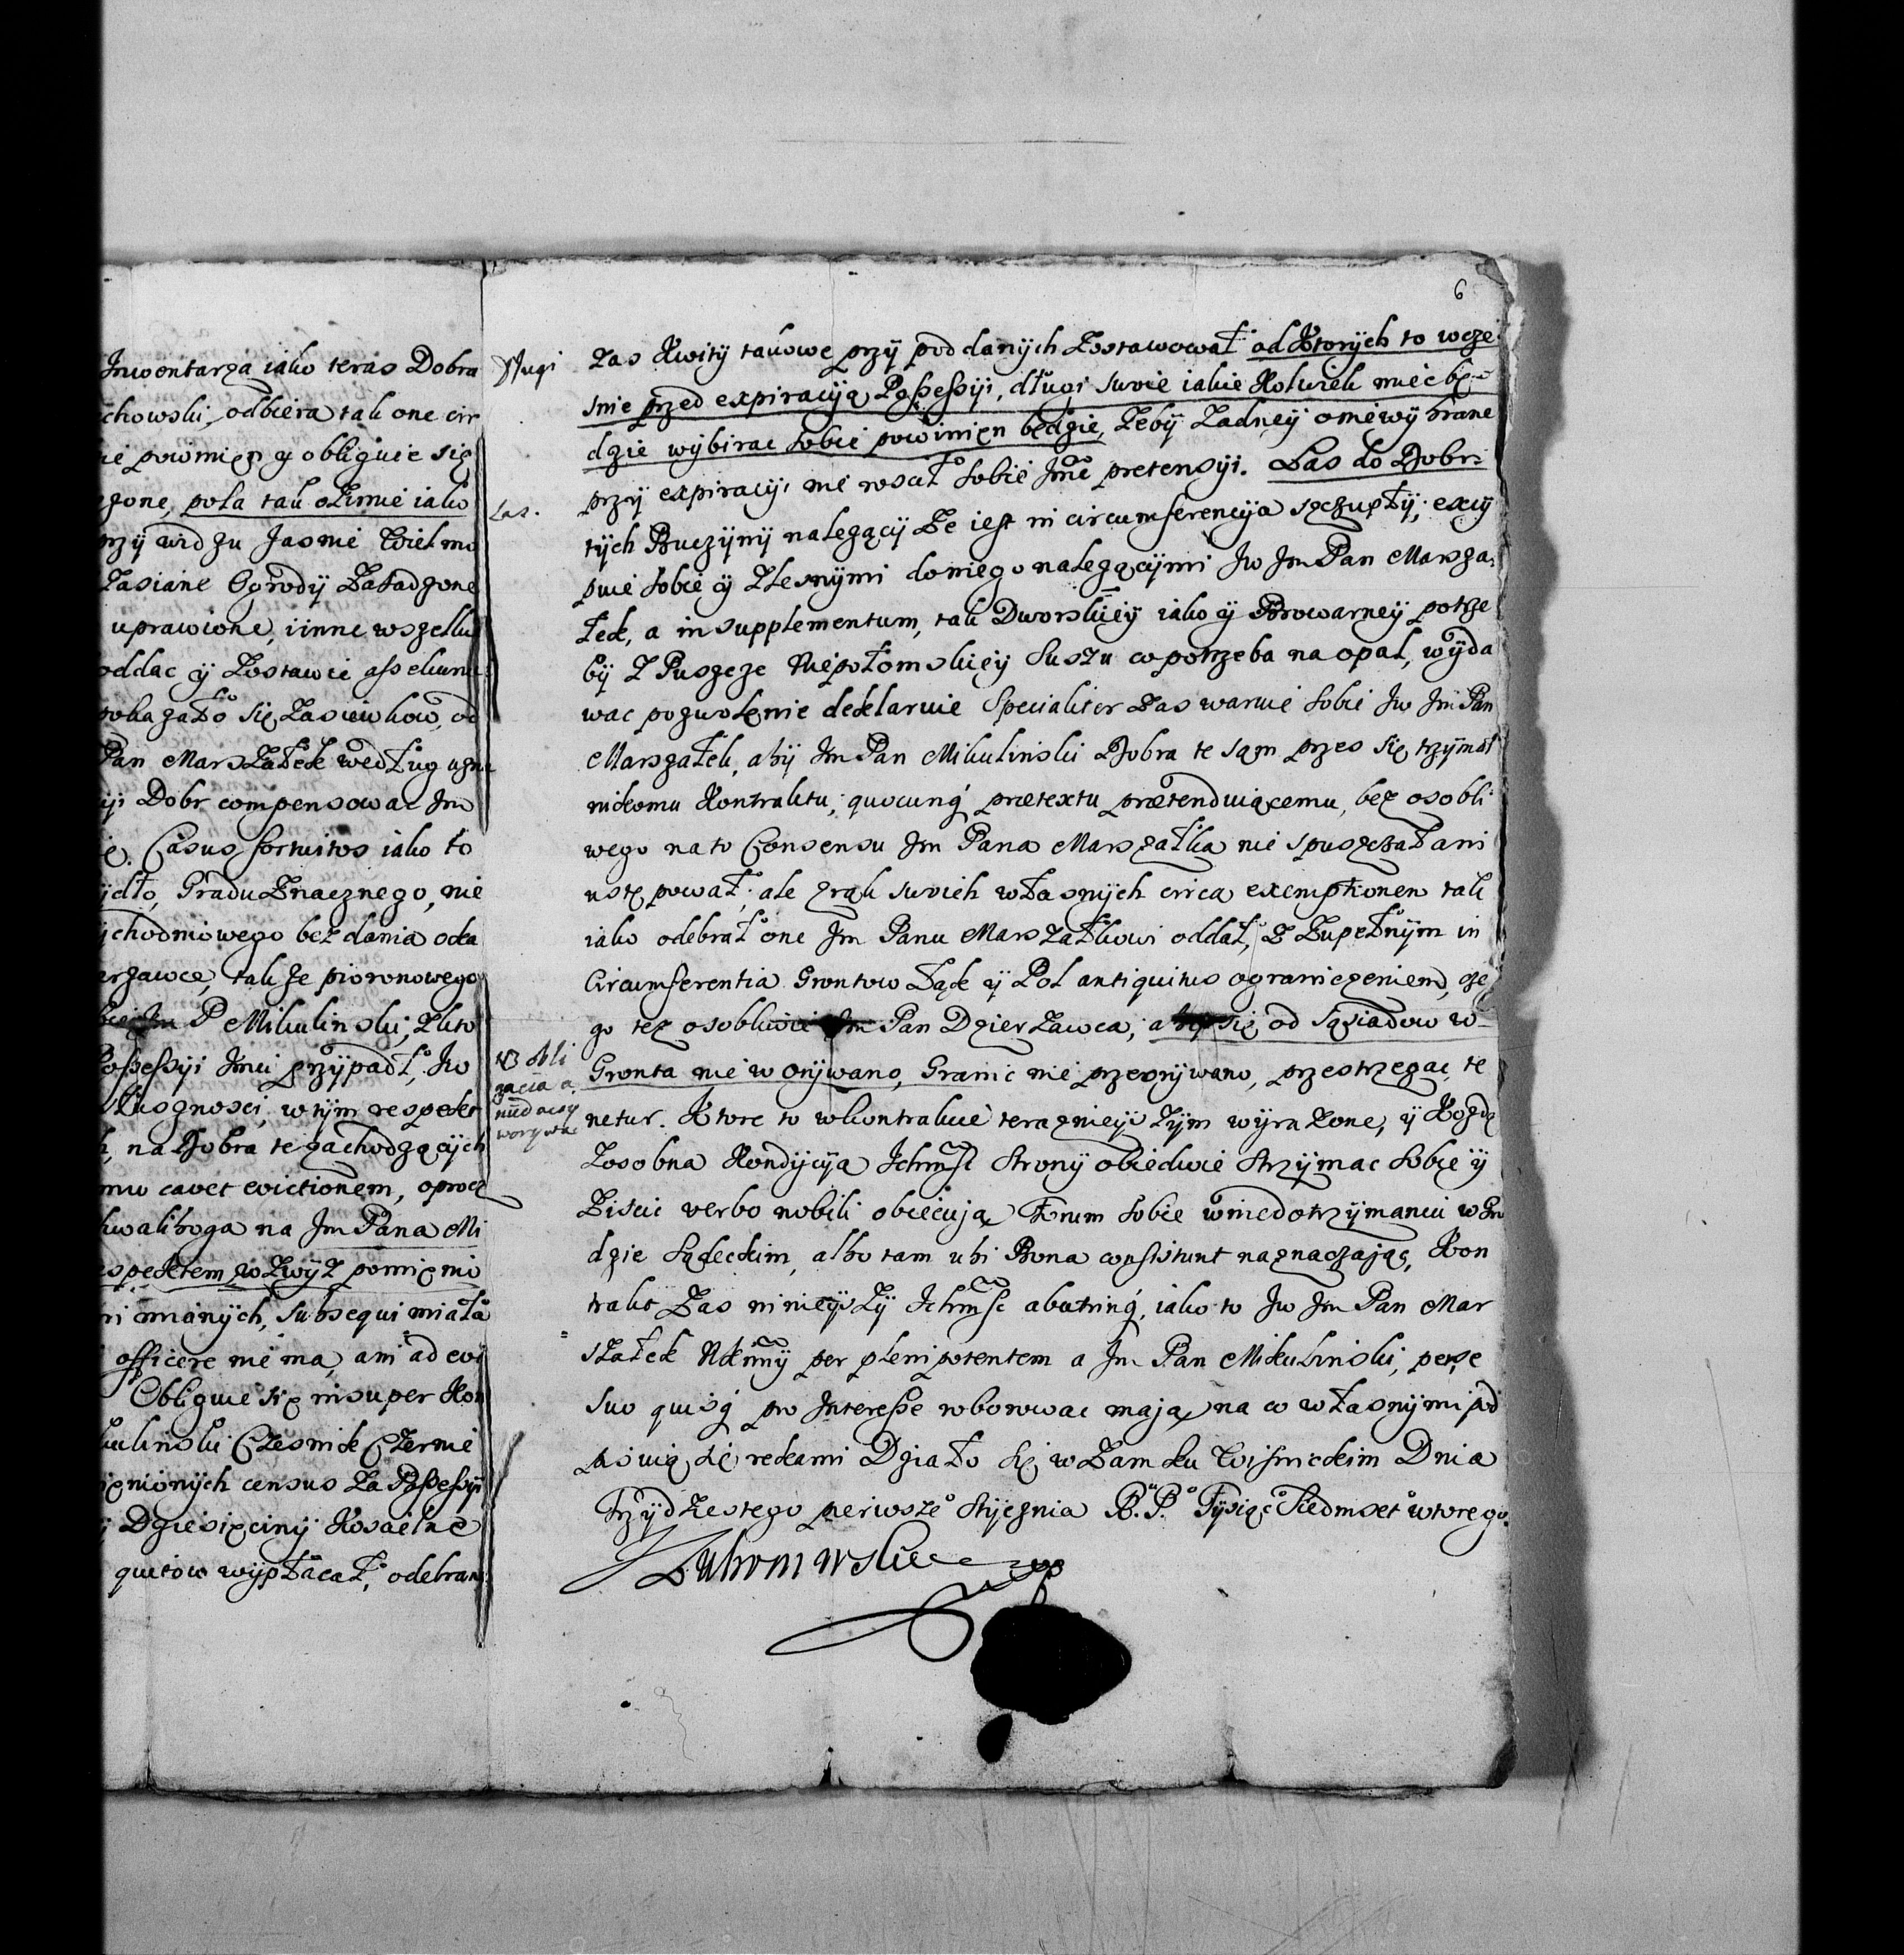 Inwentarza iako teras Dobra
chowski, odbiera tak one cir
powinien y obliguie się
zone, pola tak ozimie iako
przy urodzu Jasnie Wielmo
Zasiane Ogrody Zasadzone
uprawione, i inne wszelkie
oddac y Zostawic assekuru
pokazało się Zasiewkow, od
Pan Marszałek według uzna
Dobr compensowac Jm
Casus fortuitos iako to
Gradu Znacznego, nie
chodniowego bez dania oka
erzawce, tak ze pioronowego
Jm P Mikulinski, Zkto
Possessyi Jmci przypadł, Jw
słusznosci, w tym respekt
na Dobra te zachodzących
mu cavet evictionem, oprocz
kwaliboga na Jm Pana Mi
espektem wzwyz pomienio
mianych, subsequi miała
officere nie ma, ani ad evi
Obliguie się insuper Kon
kulinski Czesnik Czernie
ienionych census Za Possessyi
Dziesięciny Koscielne
quitow wypłacał, odebran
Długi
Las.
6
Zas Kwity takowe przy poddanych Zostawował od Ktorych to wcze
snie przed expiracyią Possessyi, długi swoie iakie Kolwiek miec bę
dzie wybierac sobie powinien będzie, Zeby Zadney o niewybrane
przy expiracyi nie roscił sobie Jmc pretensyi. Las do Dobr
tych Buczyny nalezący Ze iest in circumferencyia szczupły, excy
puie sobie y Zlesnymi do niego nalezącymi Jw Jm Pan Marsza
łek, a in supplementum, tak Dworskiey iako y Browarney potrze
by Z Puszcze Niepołomskiey Suszu co potrzeba na opal, wyda
wac pozwolenie deklaruie Specialiter Zas waruie sobie Jw Jm Pan
Marszałek, aby Jm Pan Mikulinski Dobra te sam przes się trzymał
nikomu Kontraktu, quocunq praetextu praetenduiącemu, bez osobli
wego na to Consensu Jm Pana Marszałka nie spuszczał ani
ustępował; ale z rąk swoich własnych circa exemptionem tak
iako odebrał one Jm Panu Marszałkowi oddał, Z Zupełnym in
Circumferentia Grontow Łąk y Pol antiquitus ograniczeniem, cze
go tez osobliwie Jm Pan Dzierzawca, aby się od sąsiadow w
Gronta nie wonywano, Granic nie przeorywano, przestrzegac te
netur. Ktore to w kontrakcie teraznieyszym wyrazone, y Kozdą
Zosobna Kondycyia Ichmsc Strony obiedwie strzymac sobie y
Ziscic verbo nobili obiecuią Forum sobie w niedotrzymaniu w Gro
dzie Sądeckim, albo tam ubi Bona consistunt naznaczaiąc, Kon
trakt Zas ninieyszy Ichmsc abutrinq, iako to Jw Jm Pan Mar
szałek Nkmny per plenipotentem a Jm Pan Mikulinski, per se
suo quisq pro Interesse roborowac maią, na co własnymi pod
pisuią się rekami Działo się w Zamku Wisnickim Dnia
Trzydziestego pierwsze° Styczniа R. P. Tysiąc Siedmset wtorego.
W obli
gacia a
Lubomirski